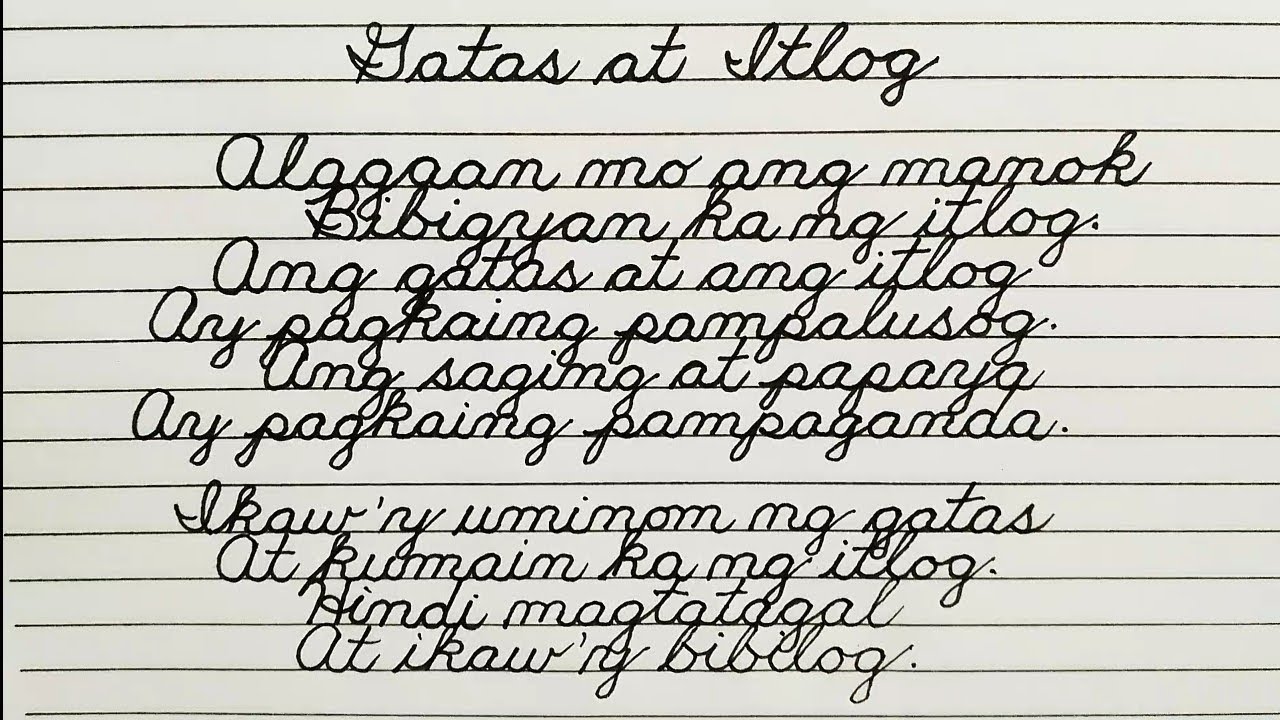 Gatas at Itlog
Alagaan mo ang manok
Bibigyan ka ng itlog.
Ang gatas at ang itlog
Ay pagkaing pampalusog.
Ang saging at papaya
Ay pagkaing pampaganda.
Ikaw'y uminom ng gatas
At kumain ka ng itlog.
Hindi magtatagal
At ikaw'y bibilog.